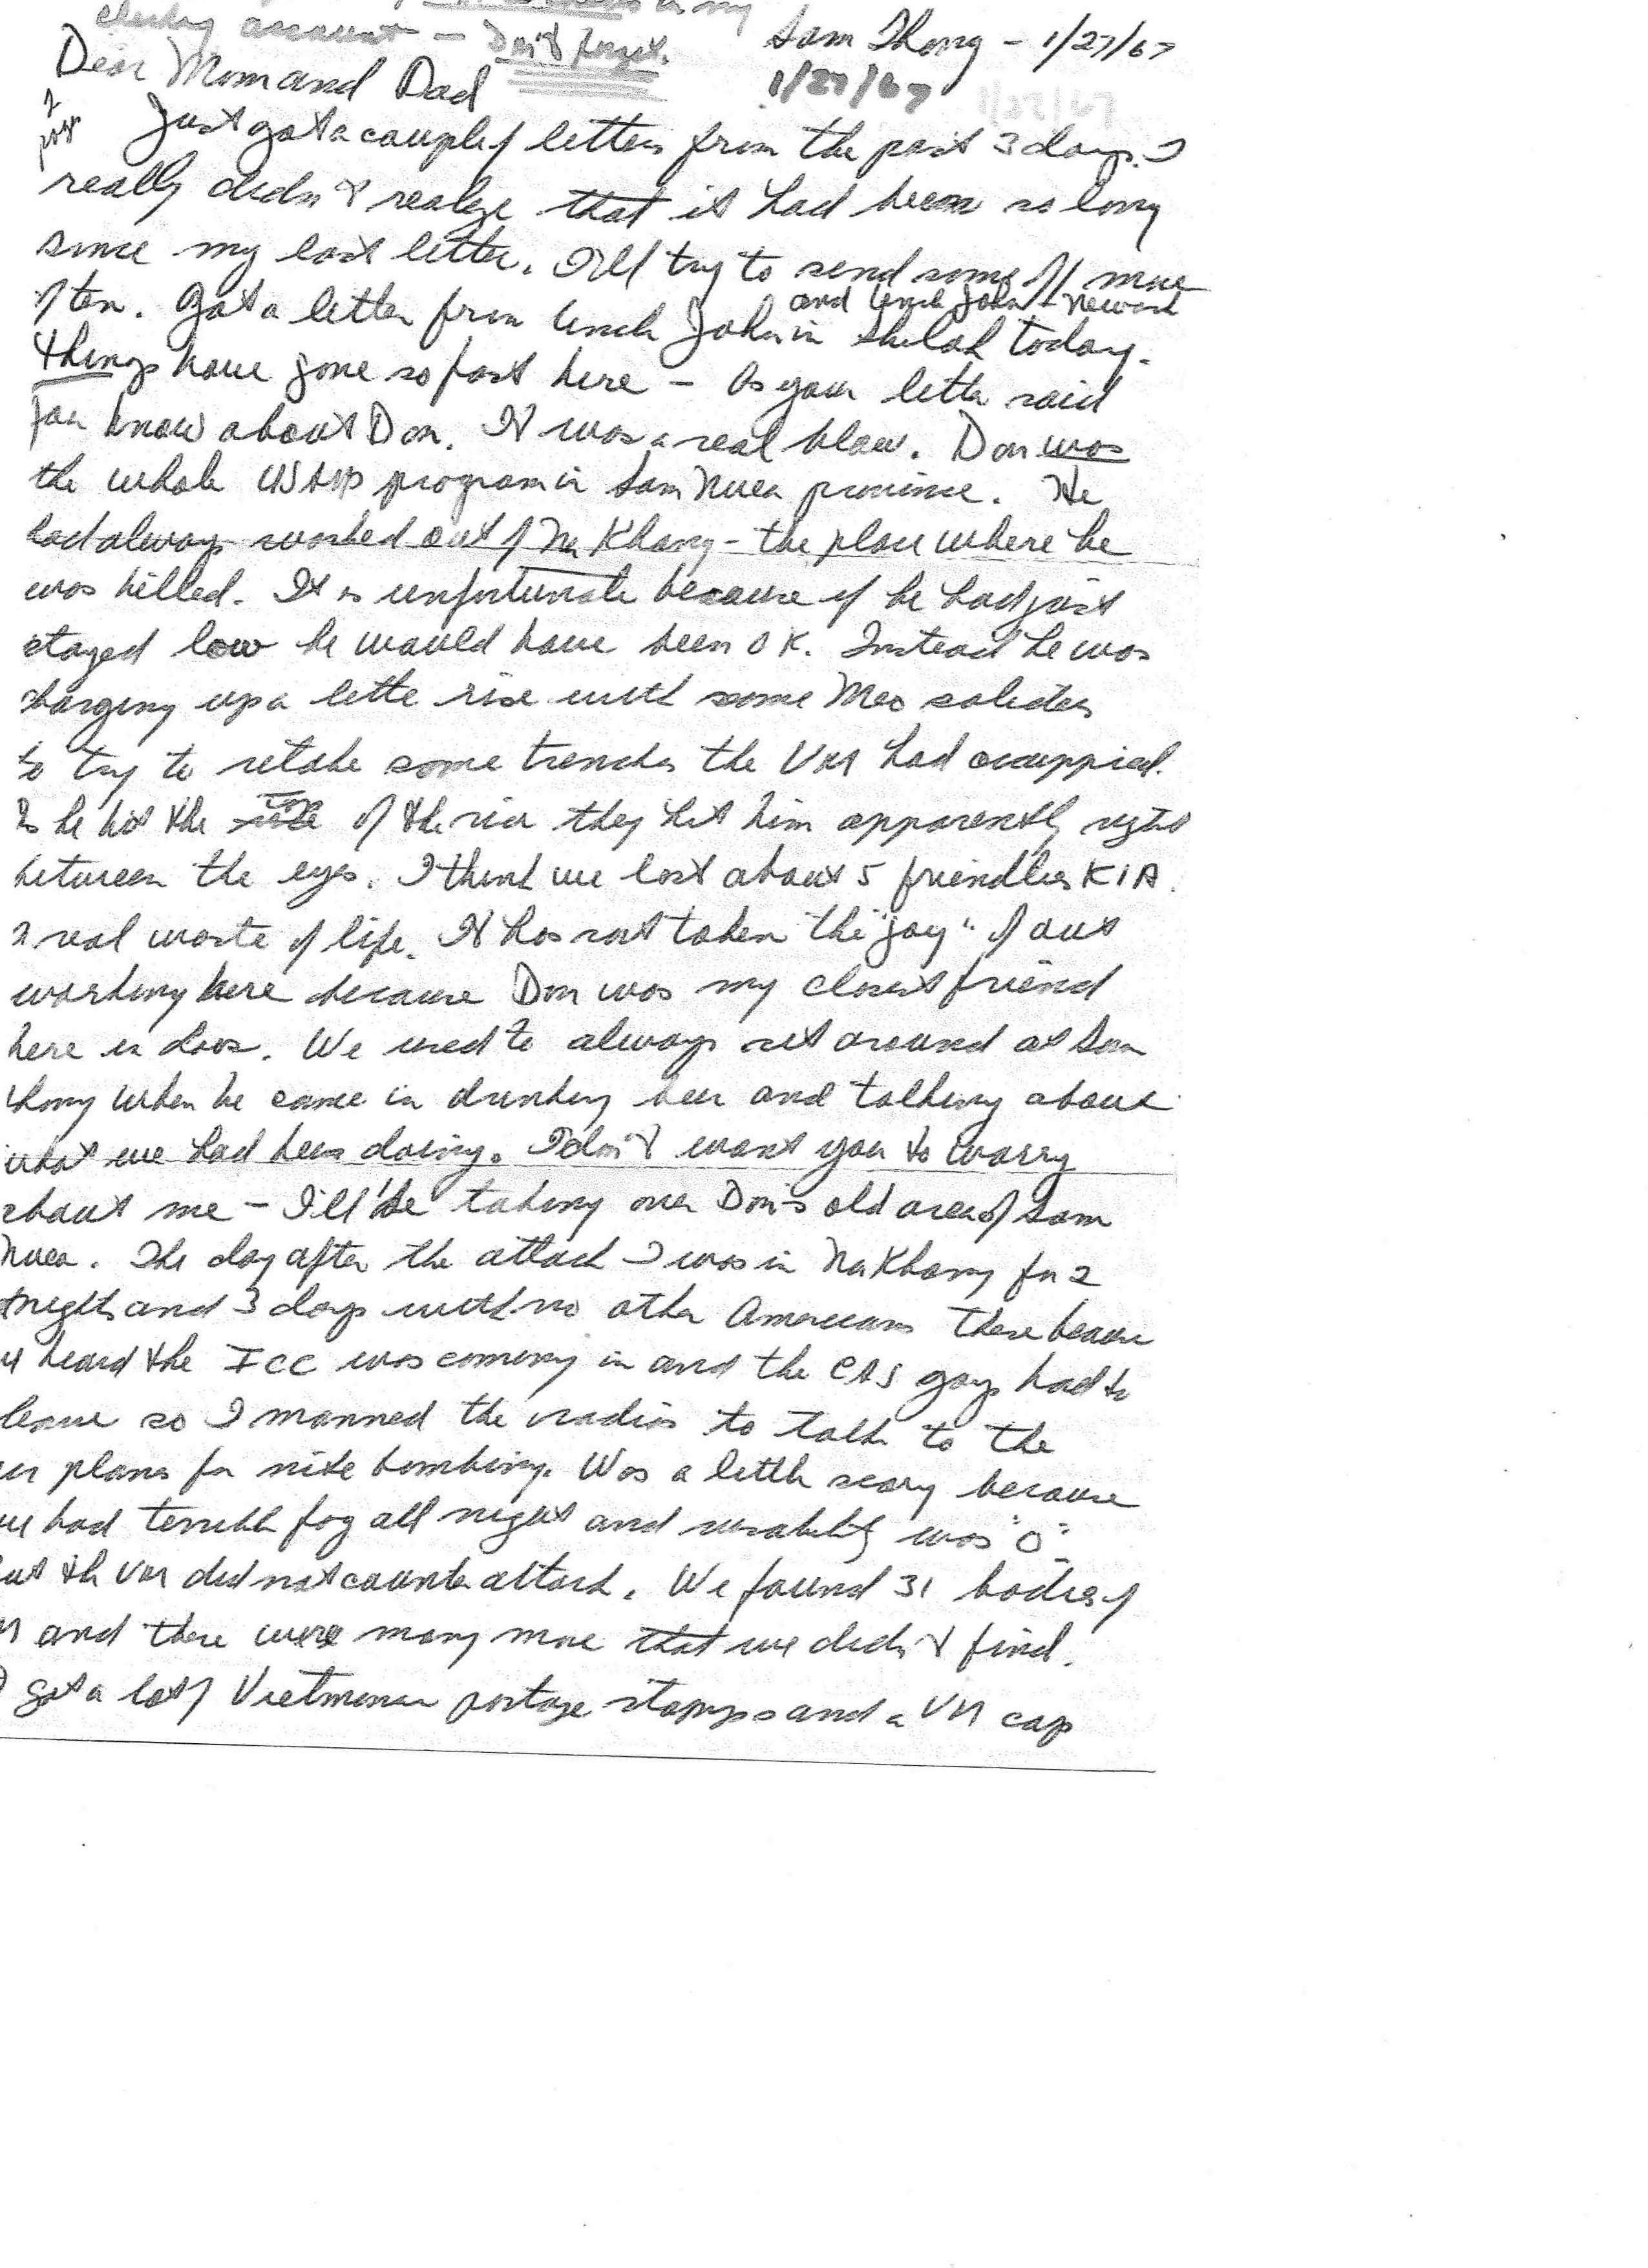 in my
checking account — Don't forget.
Sam Thong - 1/27/67
1/27/67
1/27/67
Dear Mom and Dad
Just got a couple of letters from the past 3 days. I
really didn't realize that it had been so long
since my last letter. I'll try to send some off more
often. Got a letter from Uncle John in Shiloh today.
and Uncle John - Newark
things have gone so fast here - As your letter said
you know about Don. It was a real blow. Don was
the whole USAID program in Sam Nuea province. He
had always worked out of Na Khang - the place where he
was killed. It is unfortunate because if he had just
stayed low he would have been OK. Instead he was
charging up a little rise with some Meo soliders
to try to retake some trenches the VM had occuppied.
As he hit the top of the rise they hit him apparently right
between the eyes. I think we lost about 5 friendlies KIA.
a real waste of life. It has sort taken the "joy" of out
working here because Don was my closest friend
here in Laos. We used to always sit around at Sam
Thong when he came in drinking beer and talking about
what we had been doing. I don't want you to worry
about me - I'll be taking over Don's old area of Sam
Nuea. The day after the attack I was in Na Khang for 2
nights and 3 days with no other Americans there because
we heard the ICC was coming in and the CAS guys had to
leave so I manned the radios to talk to the
planes for nite bombing. Was a little scary because
we had terrible fog all night and visability was "0"
but the VM did not counter attack. We found 31 bodies of
VM and there were many more that we didn't find.
I got a lot of Vietminh postage stamps and a VM cap